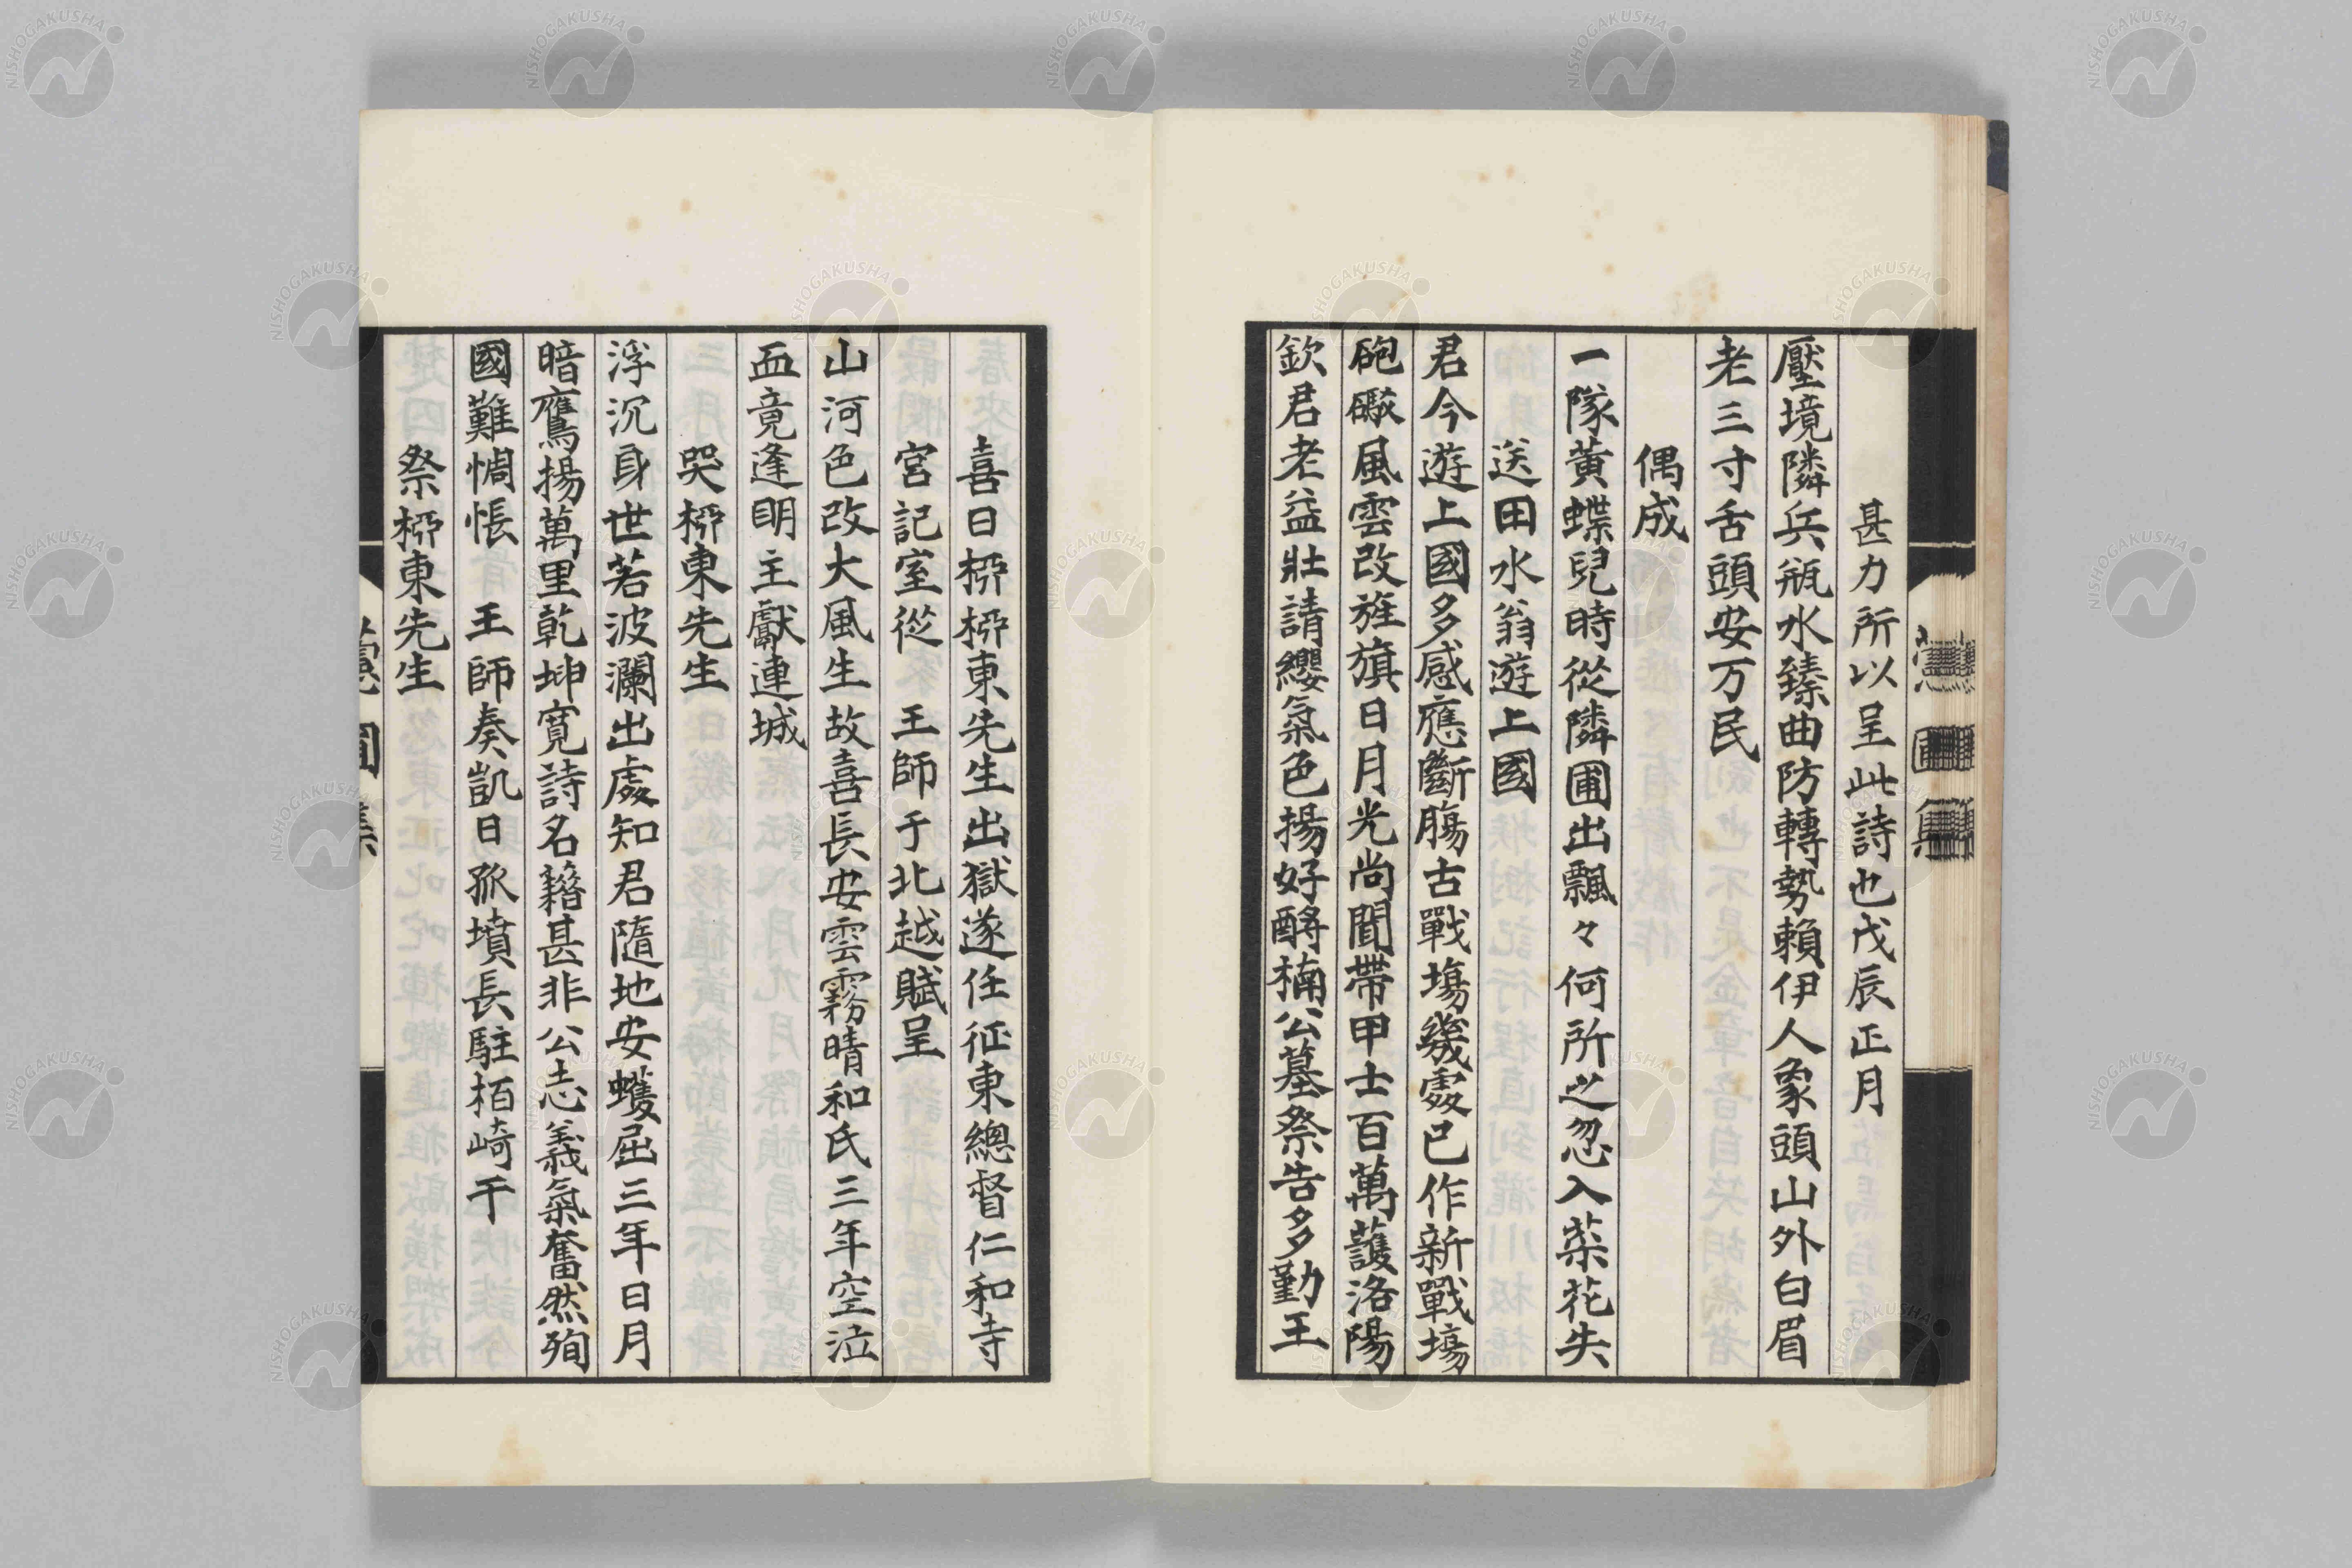 甚力所以呈此詩也戊辰正月
壓境隣兵瓶水臻曲防轉勢賴伊人象頭山外白眉
老三寸舌頭安万民
偶成
一隊黄蝶兒時從隣圃出飄々何所之忽入菜花失
送田水翁遊上國
君今遊上國多感應斷腸古戰塲幾處已作新戰塲
砲礮風雲改旌旗日月光尚聞帶甲士百萬護洛陽
欽君老益壯請纓氣色揚好酹楠公墓祭告多勤王
喜日栁栁東先生出獄遂任征東總督仁和寺
宮記室從 王師于北越賦呈
山河色改大風生故喜長安雲霧晴和氏三年空泣
血竟逢明主獻連城
哭栁東先生
浮沉身世若波瀾出處知君隨地安蠖屈三年日月
暗鷹揚萬里乾坤寛詩名籍甚非公志義氣奮然殉
國難惆悵 王師奏凱日孤墳長駐栢崎干
祭栁東先生
NISHOGAKUSHA